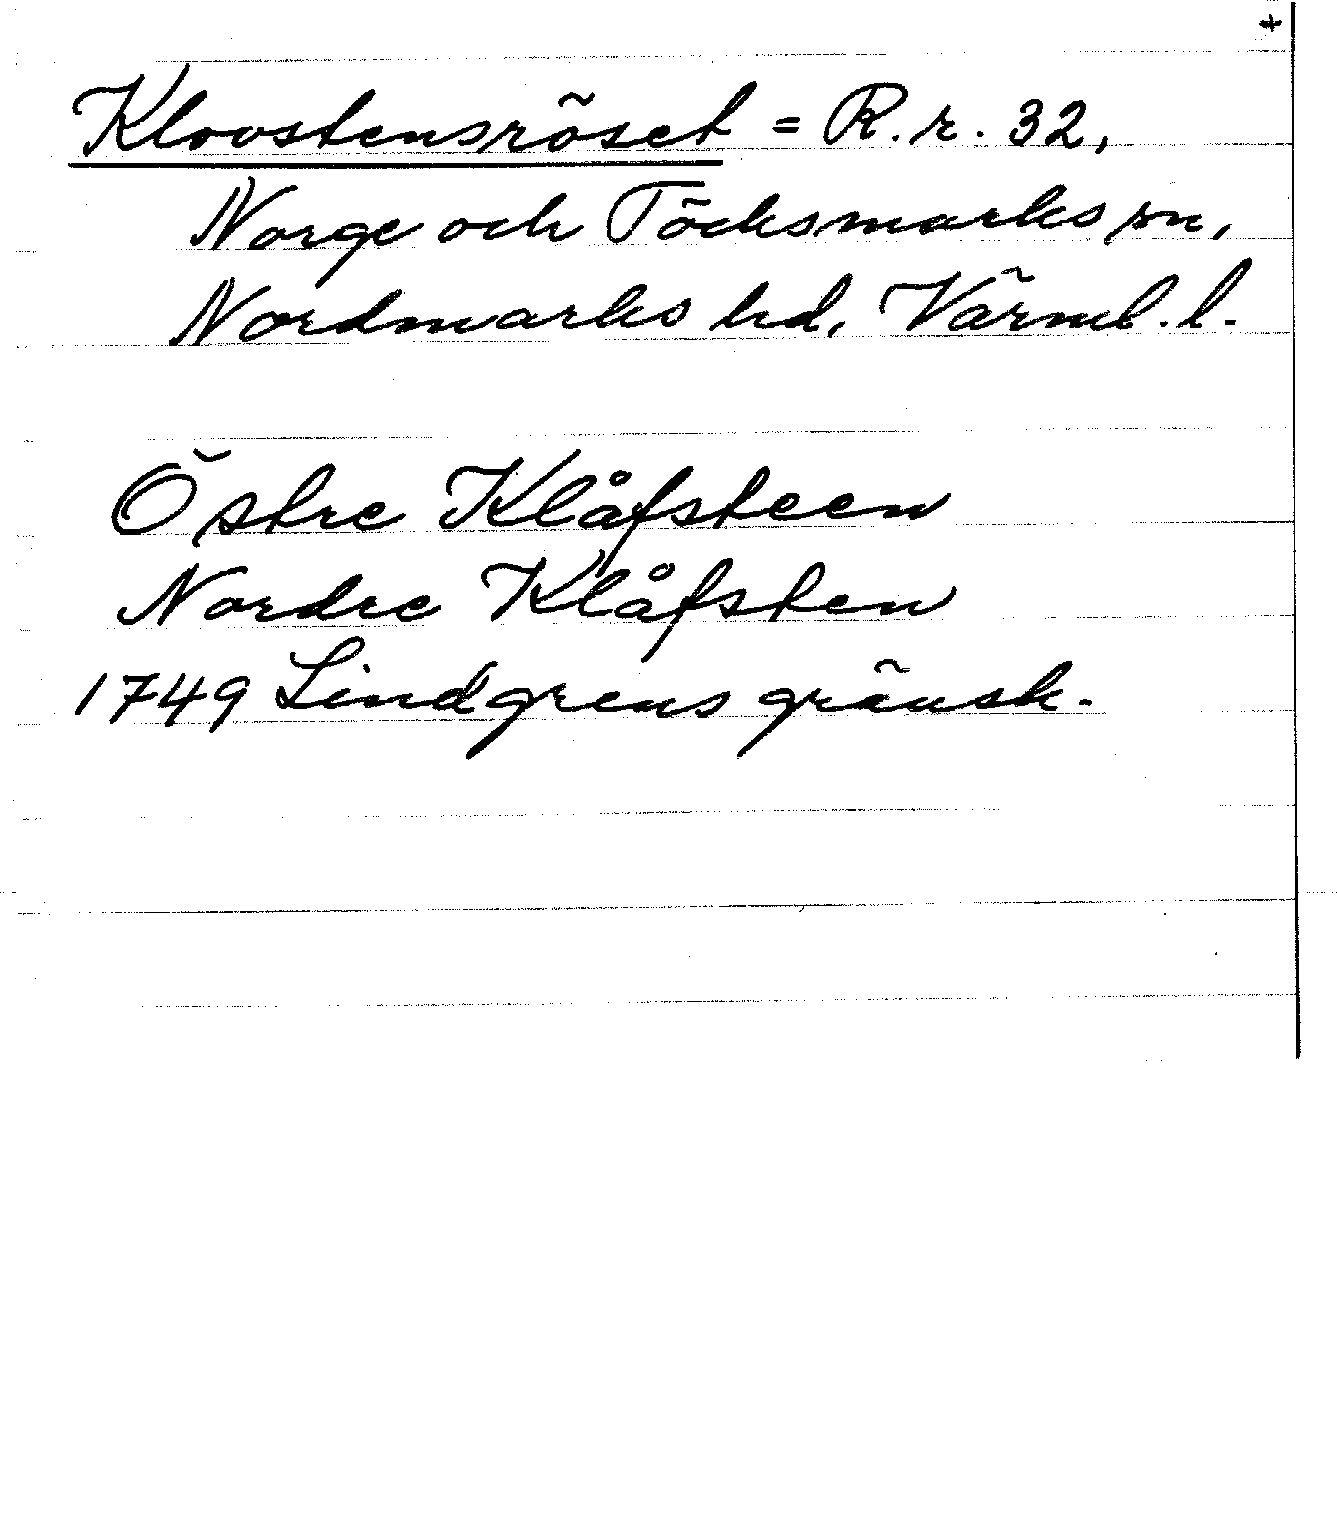 +
Kloostensröset = R. r. 32,
Norge och Töcksmarks sn,
Nordmarks hd, Värml. l.
Östre Klåfsteen
Nordre Klåfsten
1749 Lindgrens gränsk.